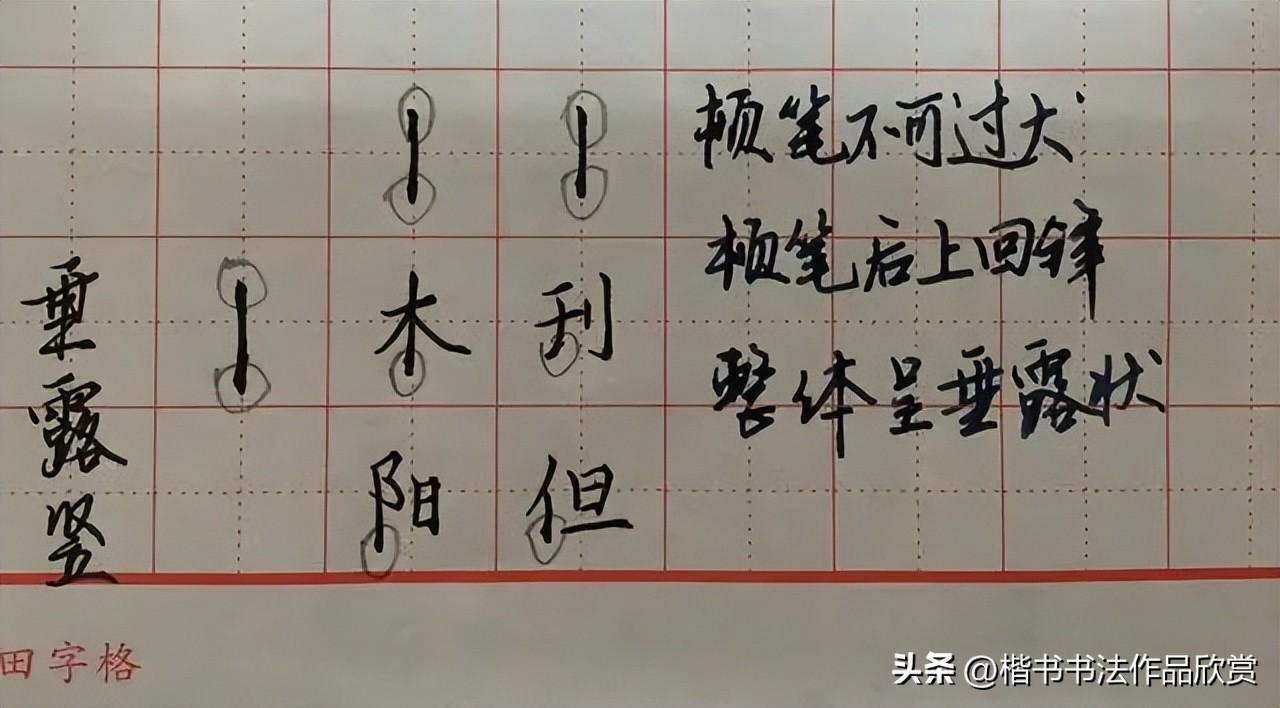 垂露竖
木 刮
阳 但
顿笔不可过大
顿笔后上回锋
整体呈垂露状
田字格
头条@楷书书法作品欣赏